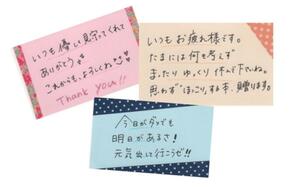 いつも優しい見守ってくれて
ありがとう
これからも、よろしくね
Thank you!!
いつもお疲れ様です。
たまには何も考えず
まったりゆっくり休んで下さいね。
思わずほっこりする本、贈ります。
今日がダメでも
明日があるさ!
元気出して行こうぜ!!